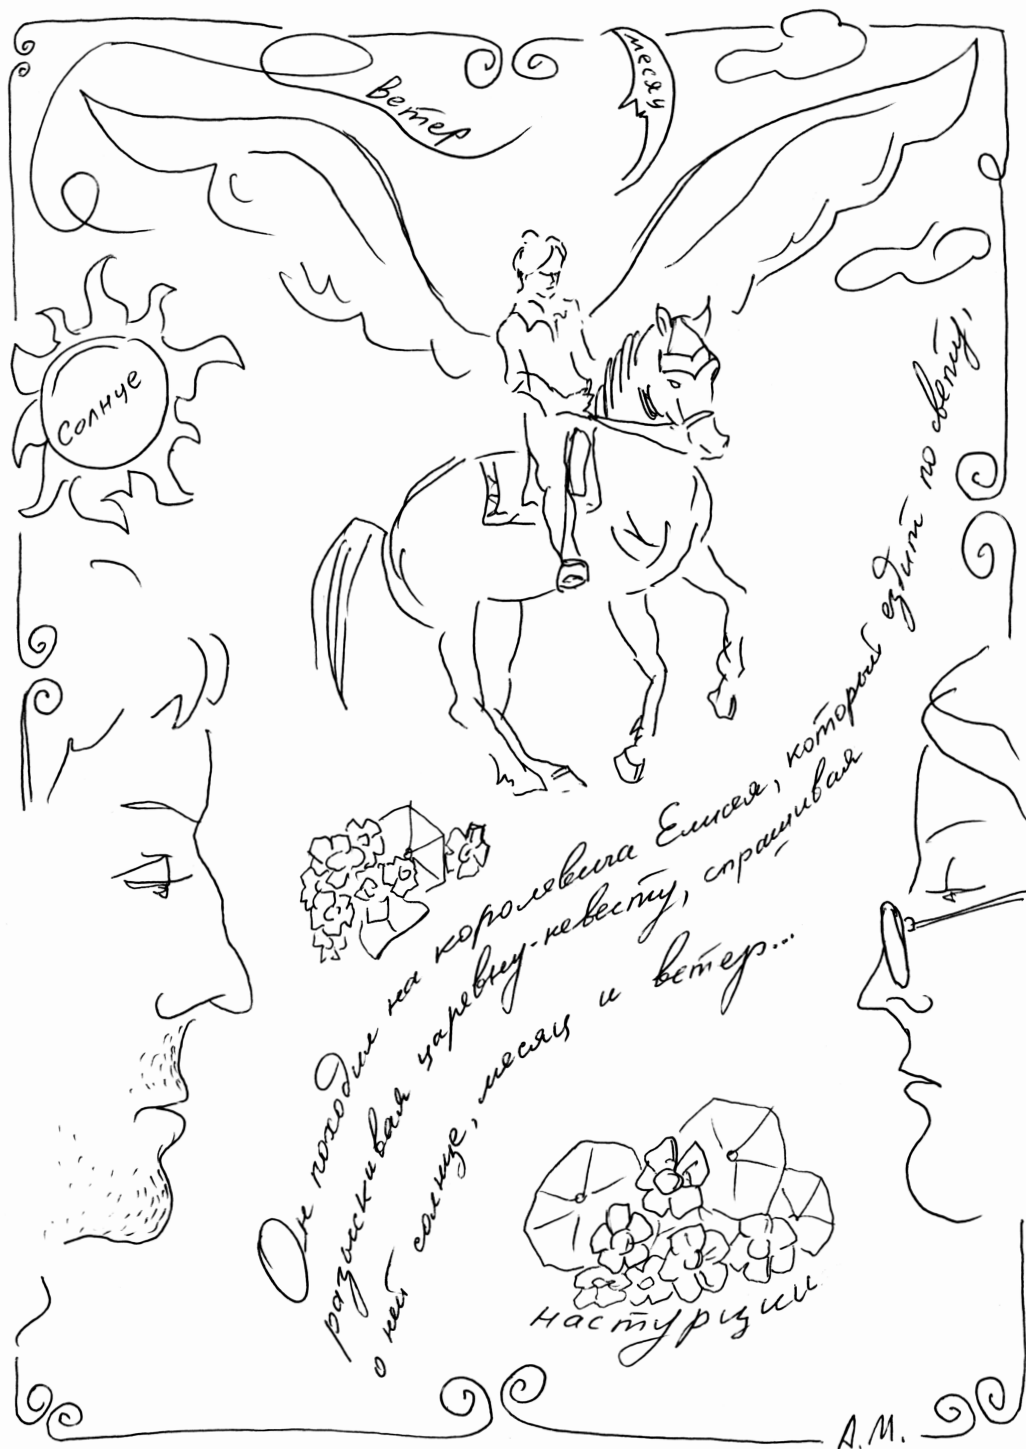 ветер
месяц
солнце
Он походил на королевича Елисея, который ездит по свету,
разыскивая царевну-невесту, спрашивая
о ней солнце, месяц и ветер...
настурции
А.М.